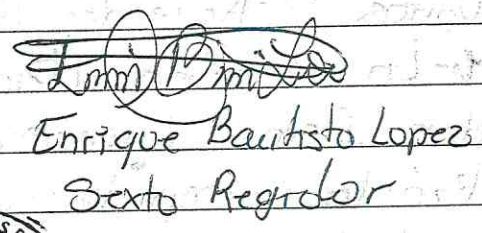 Enrique Bautisto Lopez
Sexto Regidor